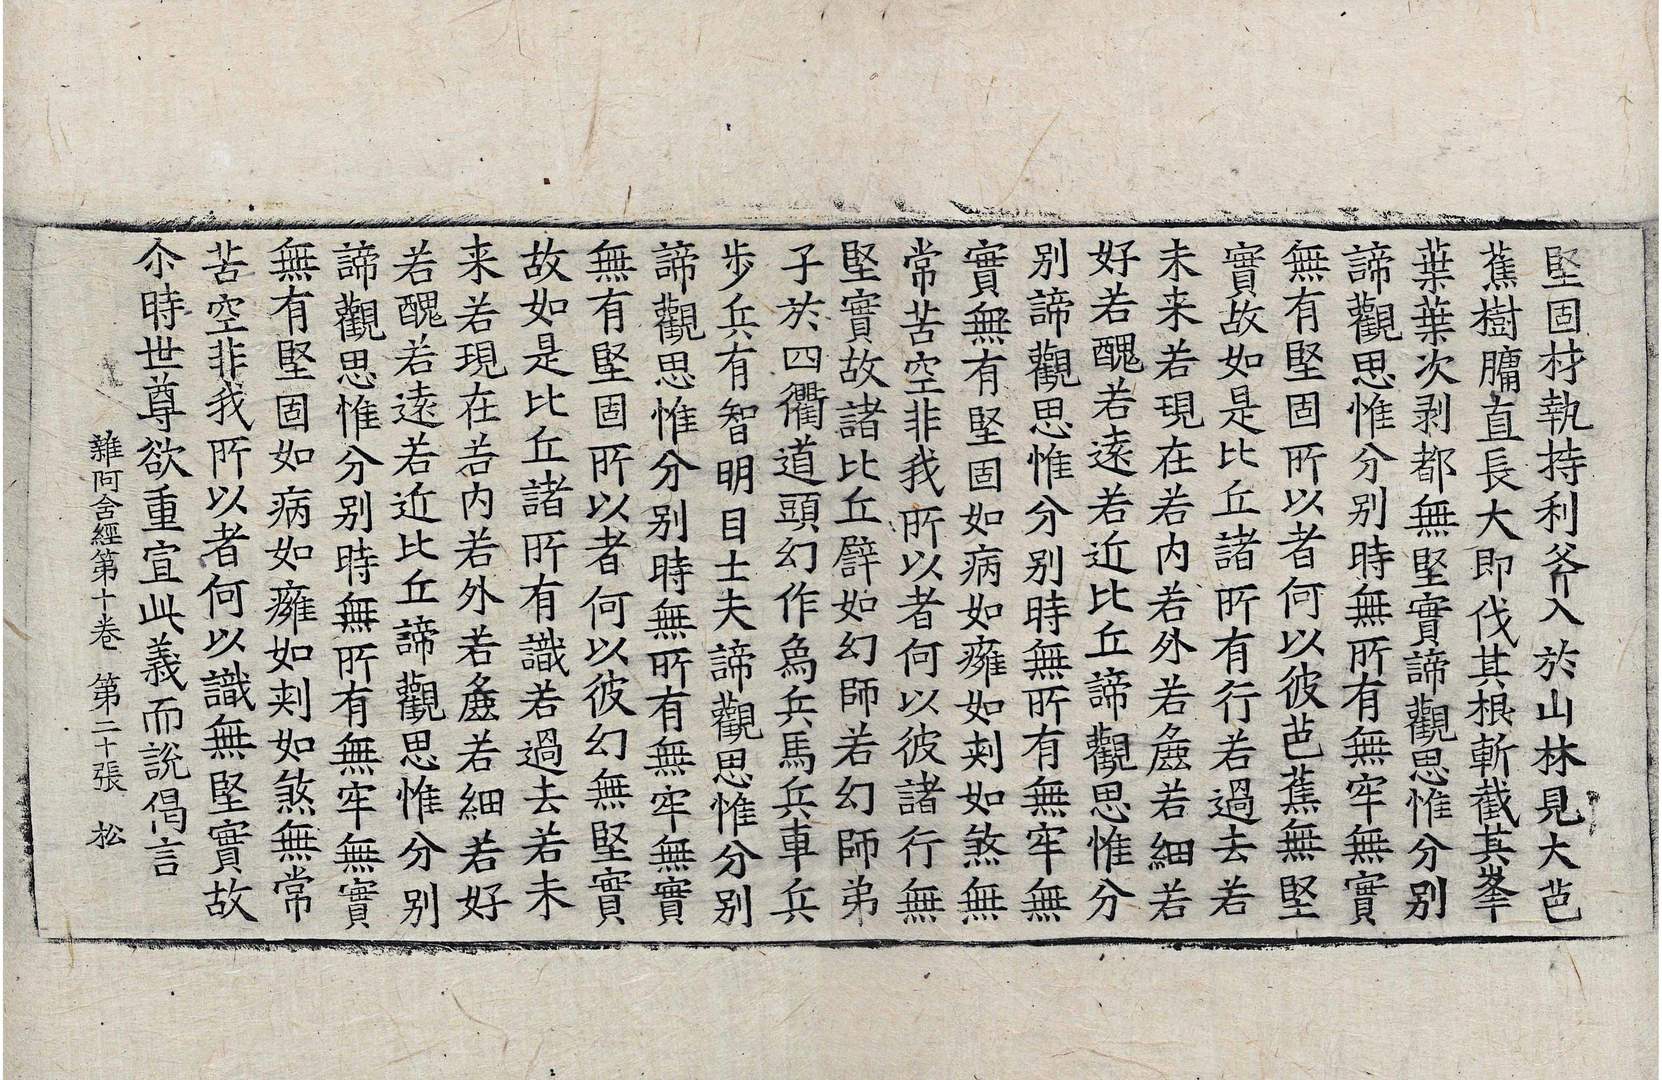 堅固材執持利斧入於山林見大芭
蕉樹𦟛直長大即伐其根斬截其峯
葉葉次剥都無堅實諦觀思惟分別
諦觀思惟分別時無所有無牢無實
無有堅固所以者何以彼芭蕉無堅
實故如是比丘諸所有行若過去若
未来若現在若内若外若麁若細若
好若醜若遠若近比丘諦觀思惟分
別諦觀思惟分別時無所有無牢無
實無有堅固如病如癰如刾如煞無
常苦空非我所以者何以彼諸行無
堅實故諸比丘譬如幻師若幻師弟
子於四衢道頭幻作烏兵馬兵車兵
步兵有智明目士夫諦觀思惟分別
諦觀思惟分別時無所有無牢無實
無有堅固所以者何以彼幻無堅實
故如是比丘諸所有識若過去若未
来若現在若内若外若麁若細若好
若醜若遠若近比丘諦觀思惟分別
諦觀思惟分別時無所有無牢無實
無有堅固如病如癰如刾如煞無常
苦空非我所以者何以識無堅實故
尒時世尊欲重宣此義而說偈言
雜阿含經第十卷 第二十張 松